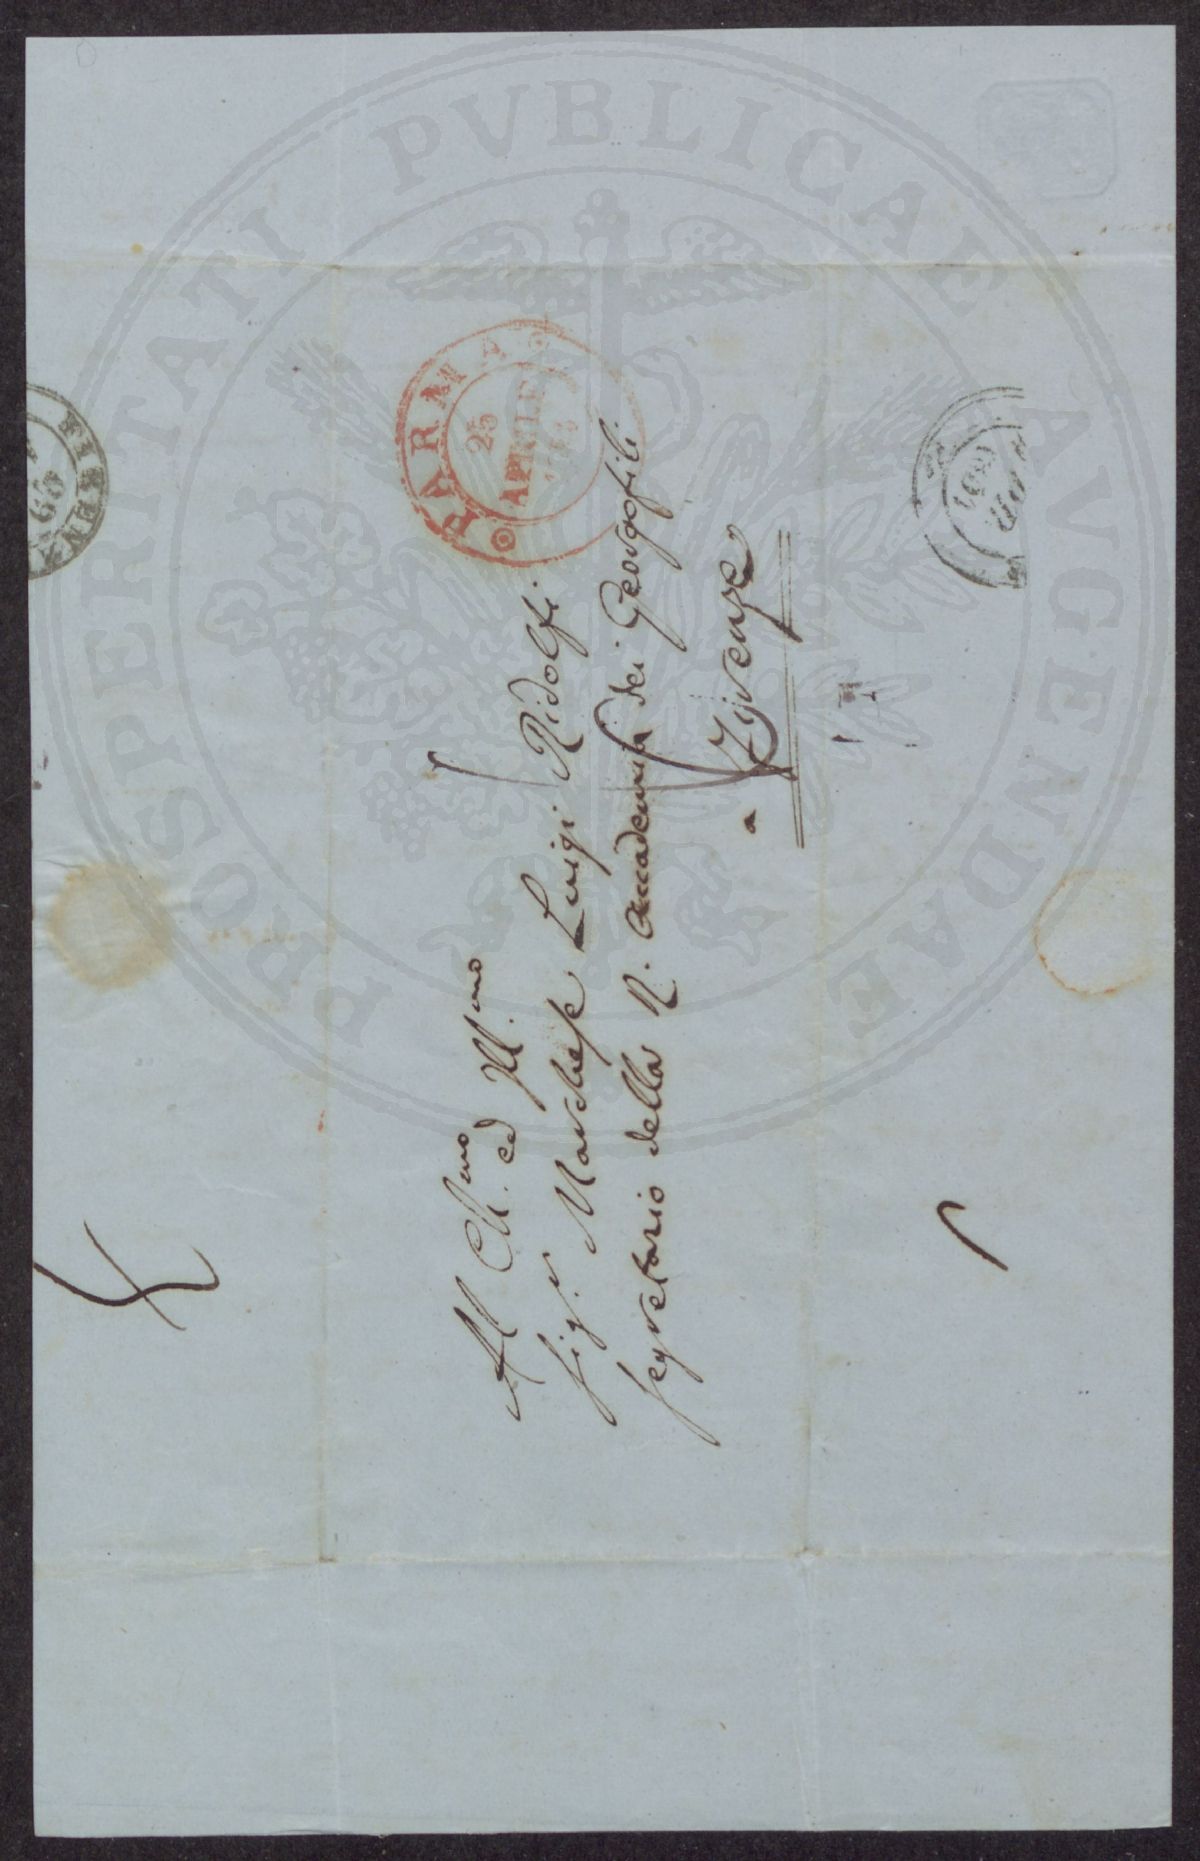 Al Ch.mo ed Ill.mo
Sig.r Marchese Luigi Ridolfi
Segretario della R. Accademia dei Georgofili
a Firenze
PARMA
25
APRILE
PROSPERITATI PVBLICAE AVGENDAE